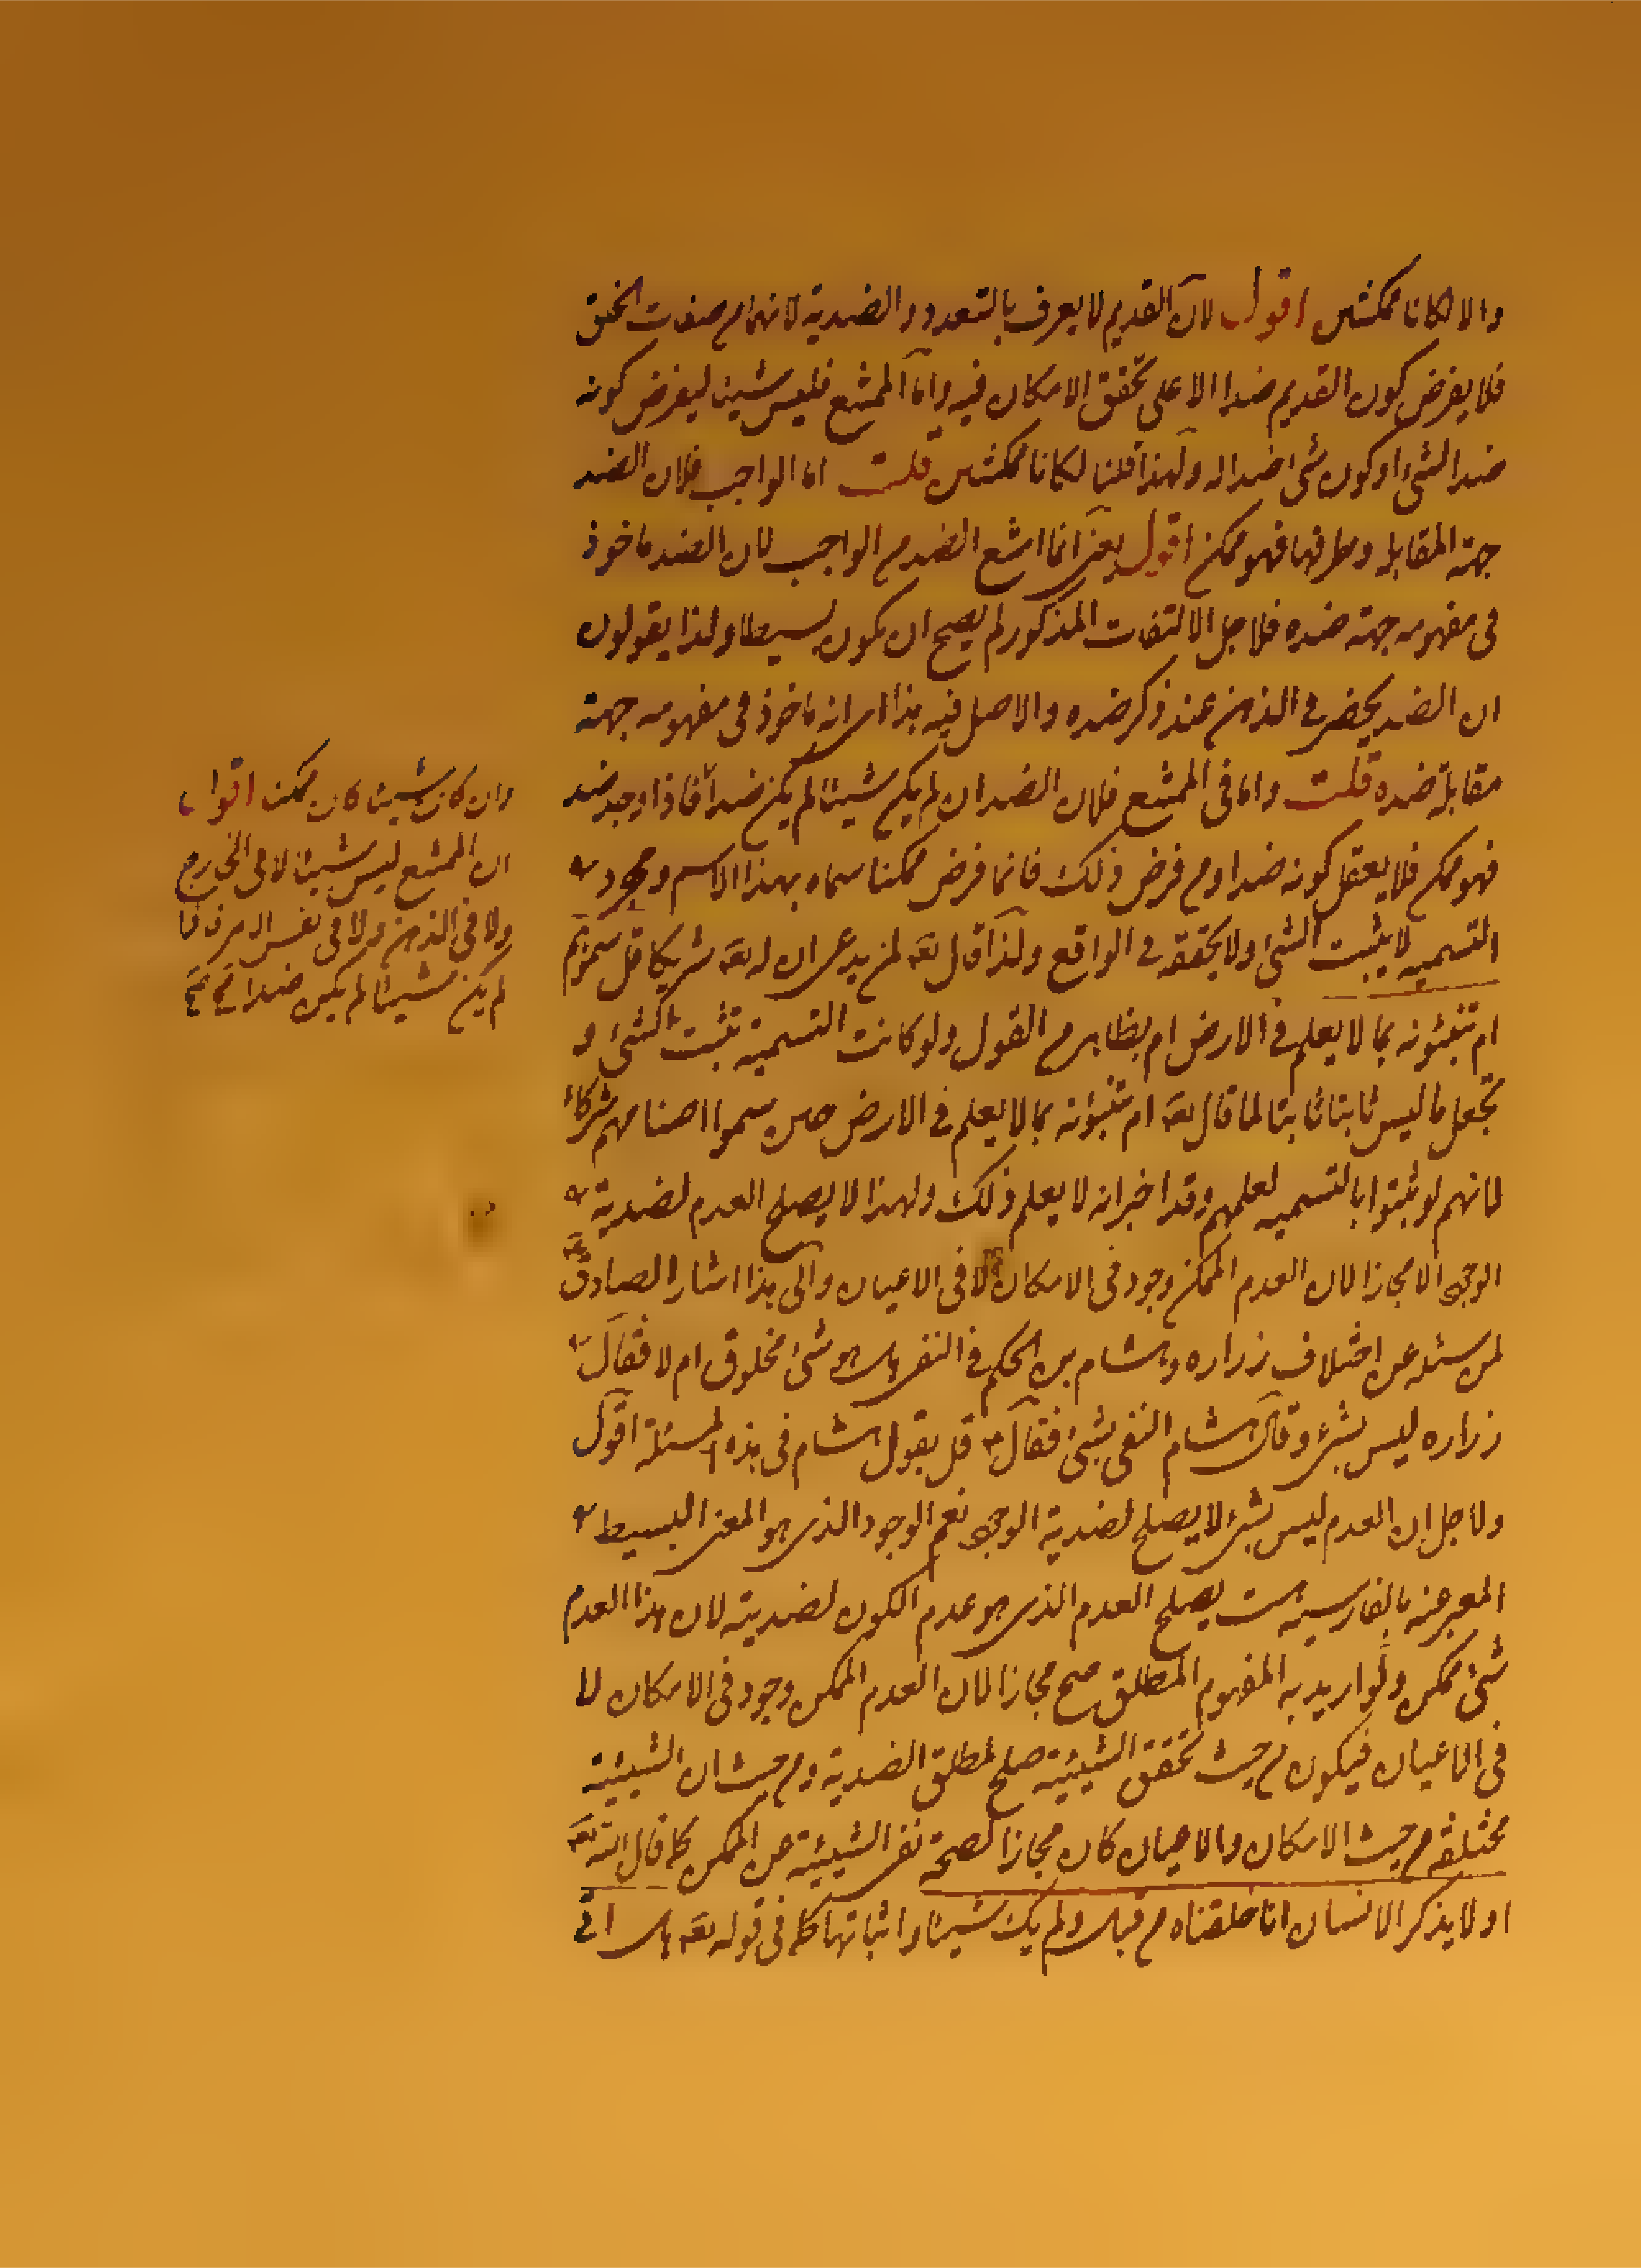 والا لكانا ممكنين اقول لان القديم لا يعرف بالتعدد والضدية لانهما من صفات الخلق
فلا يفرض كون القديم ضدا الا على تحقق الامكان فيه واما الممتنع فليس شيئا ليفرض كونه
ضدا لشئ او كون شئ ضدا له ولهذا قلنا لكانا ممكنين قلت اما الواجب فلان الضد
جهة المقابل وطرفها فهو ممكن اقول يعنى انما امتنع الضد من الواجب لان الضد ماخوذ
فى مفهومه جهة ضده فلاجل الالتفات المذكور لم يصح ان يكون بسيطا ولذا يقولون
ان الضد يحضر فى الذهن عند ذكر ضده والاصل فيه هذا اى انه ماخوذ فى مفهومه جهة
مقابلة ضده قلت واما فى الممتنع فلان الضد ان لم يكن شيئا لم يكن ضدا فاذا وجد ضد
فهو ممكن فلا يعقل كونه ضدا ومن فرض ذلك فانما فرض ممكنا سماه بهذا الاسم ومجرد
التسميه لا يثبت الشئ ولا يحققه فى الواقع ولذا قال تعه لمن يدعى ان له تعه شريكا قل سموهم
ام تنبئونه بما لا يعلم فى الارض ام بظاهر من القول ولو كانت التسمية تثبت الشئ و
تجعل ما ليس ثابتا ثابتا لما قال تعه ام تنبؤنه بما لا يعلم فى الارض حين سموا اصنامهم شركاء
لانهم لو ثبتوا بالتسميه لعلمهم وقد اخبر انه لا يعلم ذلك ولهذا لا يصلح العدم لضدية
الوجود الا مجازا لان العدم الممكن وجود فى الامكان لا فى الاعيان والى هذا اشار الصادق
لمن سئله عن اختلاف زراره وهشام بن الحكم فى النفى هل هو شئ مخلوق ام لا فقال
زراره ليس بشئ وقال هشام النفى بشئ فقال قل بقول هشام فى هذه المسئلة اقول
ولاجل ان العدم ليس بشئ لا يصلح لضدية الوجود نعم الوجود الذى هو المعنى البسيط
المعبر عنه بالفارسية هست يصلح العدم الذى هو عدم الكون لضديته لان هذا العدم
شئ ممكن ولو اريد به المفهوم المطلق صح مجازا لان العدم الممكن وجود فى الامكان لا
فى الاعيان فيكون من حيث تحقق الشيئية صلح لمطلق الضدية ومن حيث ان الشيئية
مختلفة من حيث الامكان والاعيان كان مجازا لصحة نفى الشيئية عن الممكن كما قال الله تعه
اولا يذكر الانسان انا خلقناه من قبل ولم يك شيئا واثباتها كما فى قوله تعه هل اتى
وان كان شيئا كان ممكنا اقول
ان الممتنع ليس شيئا لا فى الخارج
ولا فى الذهن ولا فى نفس الامر فاذا
لم يكن شيئا لم يكن ضدا